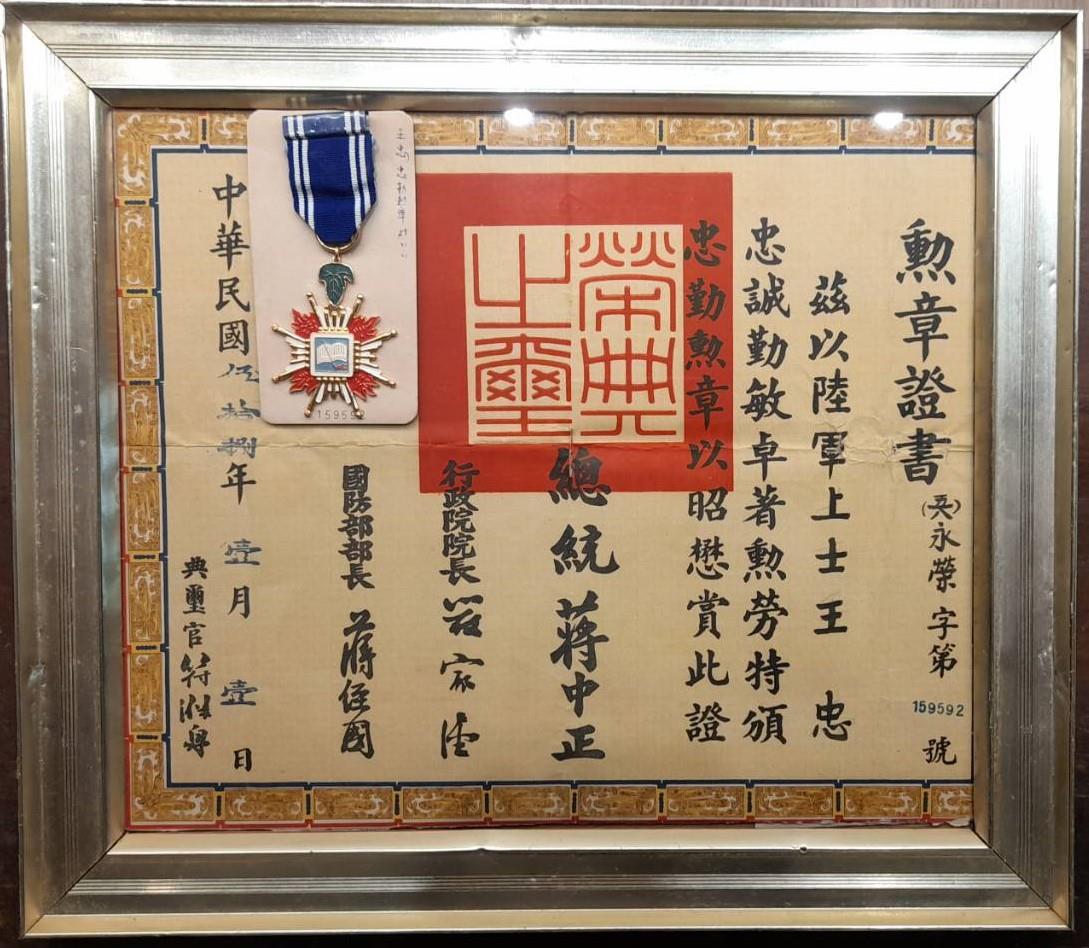 勳章證書
(吳)永榮字第159592號
茲以陸軍上士王忠
忠誠勤敏卓著勲勞特頒
忠勤勳章以昭懋賞此證
榮典之璽
總統 蔣中正
行政院院長 嚴家淦
國防部部長 蔣經國
中華民國伍拾捌年壹月壹日
典璽官
王忠 忠勤勳章
159592